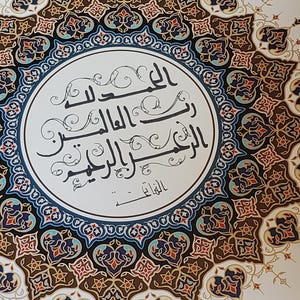 الحمد لله
رب العالمين
الرحمن الرحيم
الفاتحة